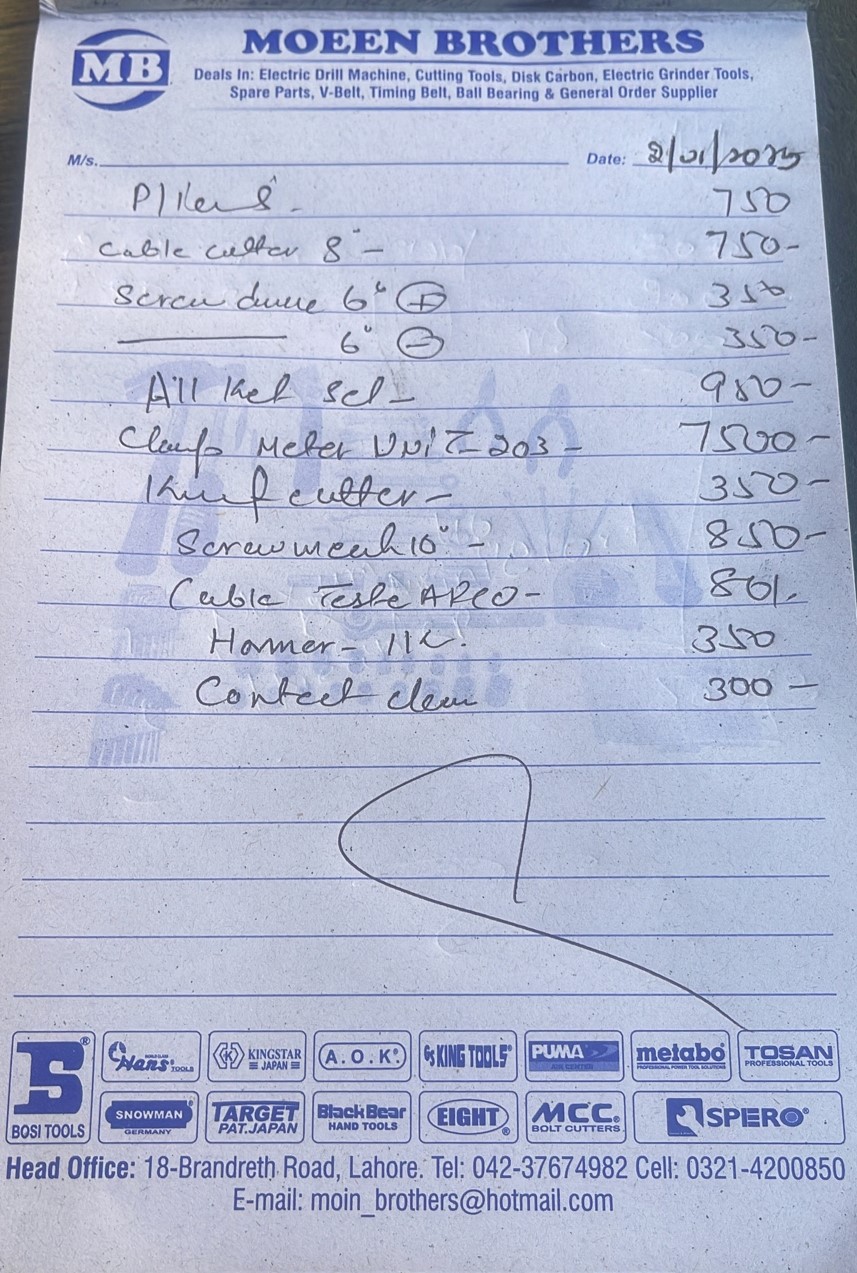 MB
MOEEN BROTHERS
Deals In: Electric Drill Machine, Cutting Tools, Disk Carbon, Electric Grinder Tools,
Spare Parts, V-Belt, Timing Belt, Ball Bearing & General Order Supplier
M/s. Date: 2/01/2025
750
Cable cutter 8" - 750-
Screw 6" + 350
6" - 350-
All Ket Set - 950-
Clamp Meter UNI T-203 - 7500-
cutter - 350-
Screw 10" - 850-
Cable 
Hammer - 350
Contect 300 -
BOSI TOOLS ®
Hans WORLD CLASS TOOLS
K KINGSTAR JAPAN
A.O.K®
KING TOOLS®
PUMA AIR CENTER
metabo® PROFESSIONAL POWER TOOL SOLUTIONS
TOSAN PROFESSIONAL TOOLS
SNOWMAN GERMANY
TARGET PAT.JAPAN
BlackBear HAND TOOLS
EIGHT ®
MCC® BOLT CUTTERS
SPERO®
Head Office: 18-Brandreth Road, Lahore. Tel: 042-37674982 Cell: 0321-4200850
E-mail: moin_brothers@hotmail.com